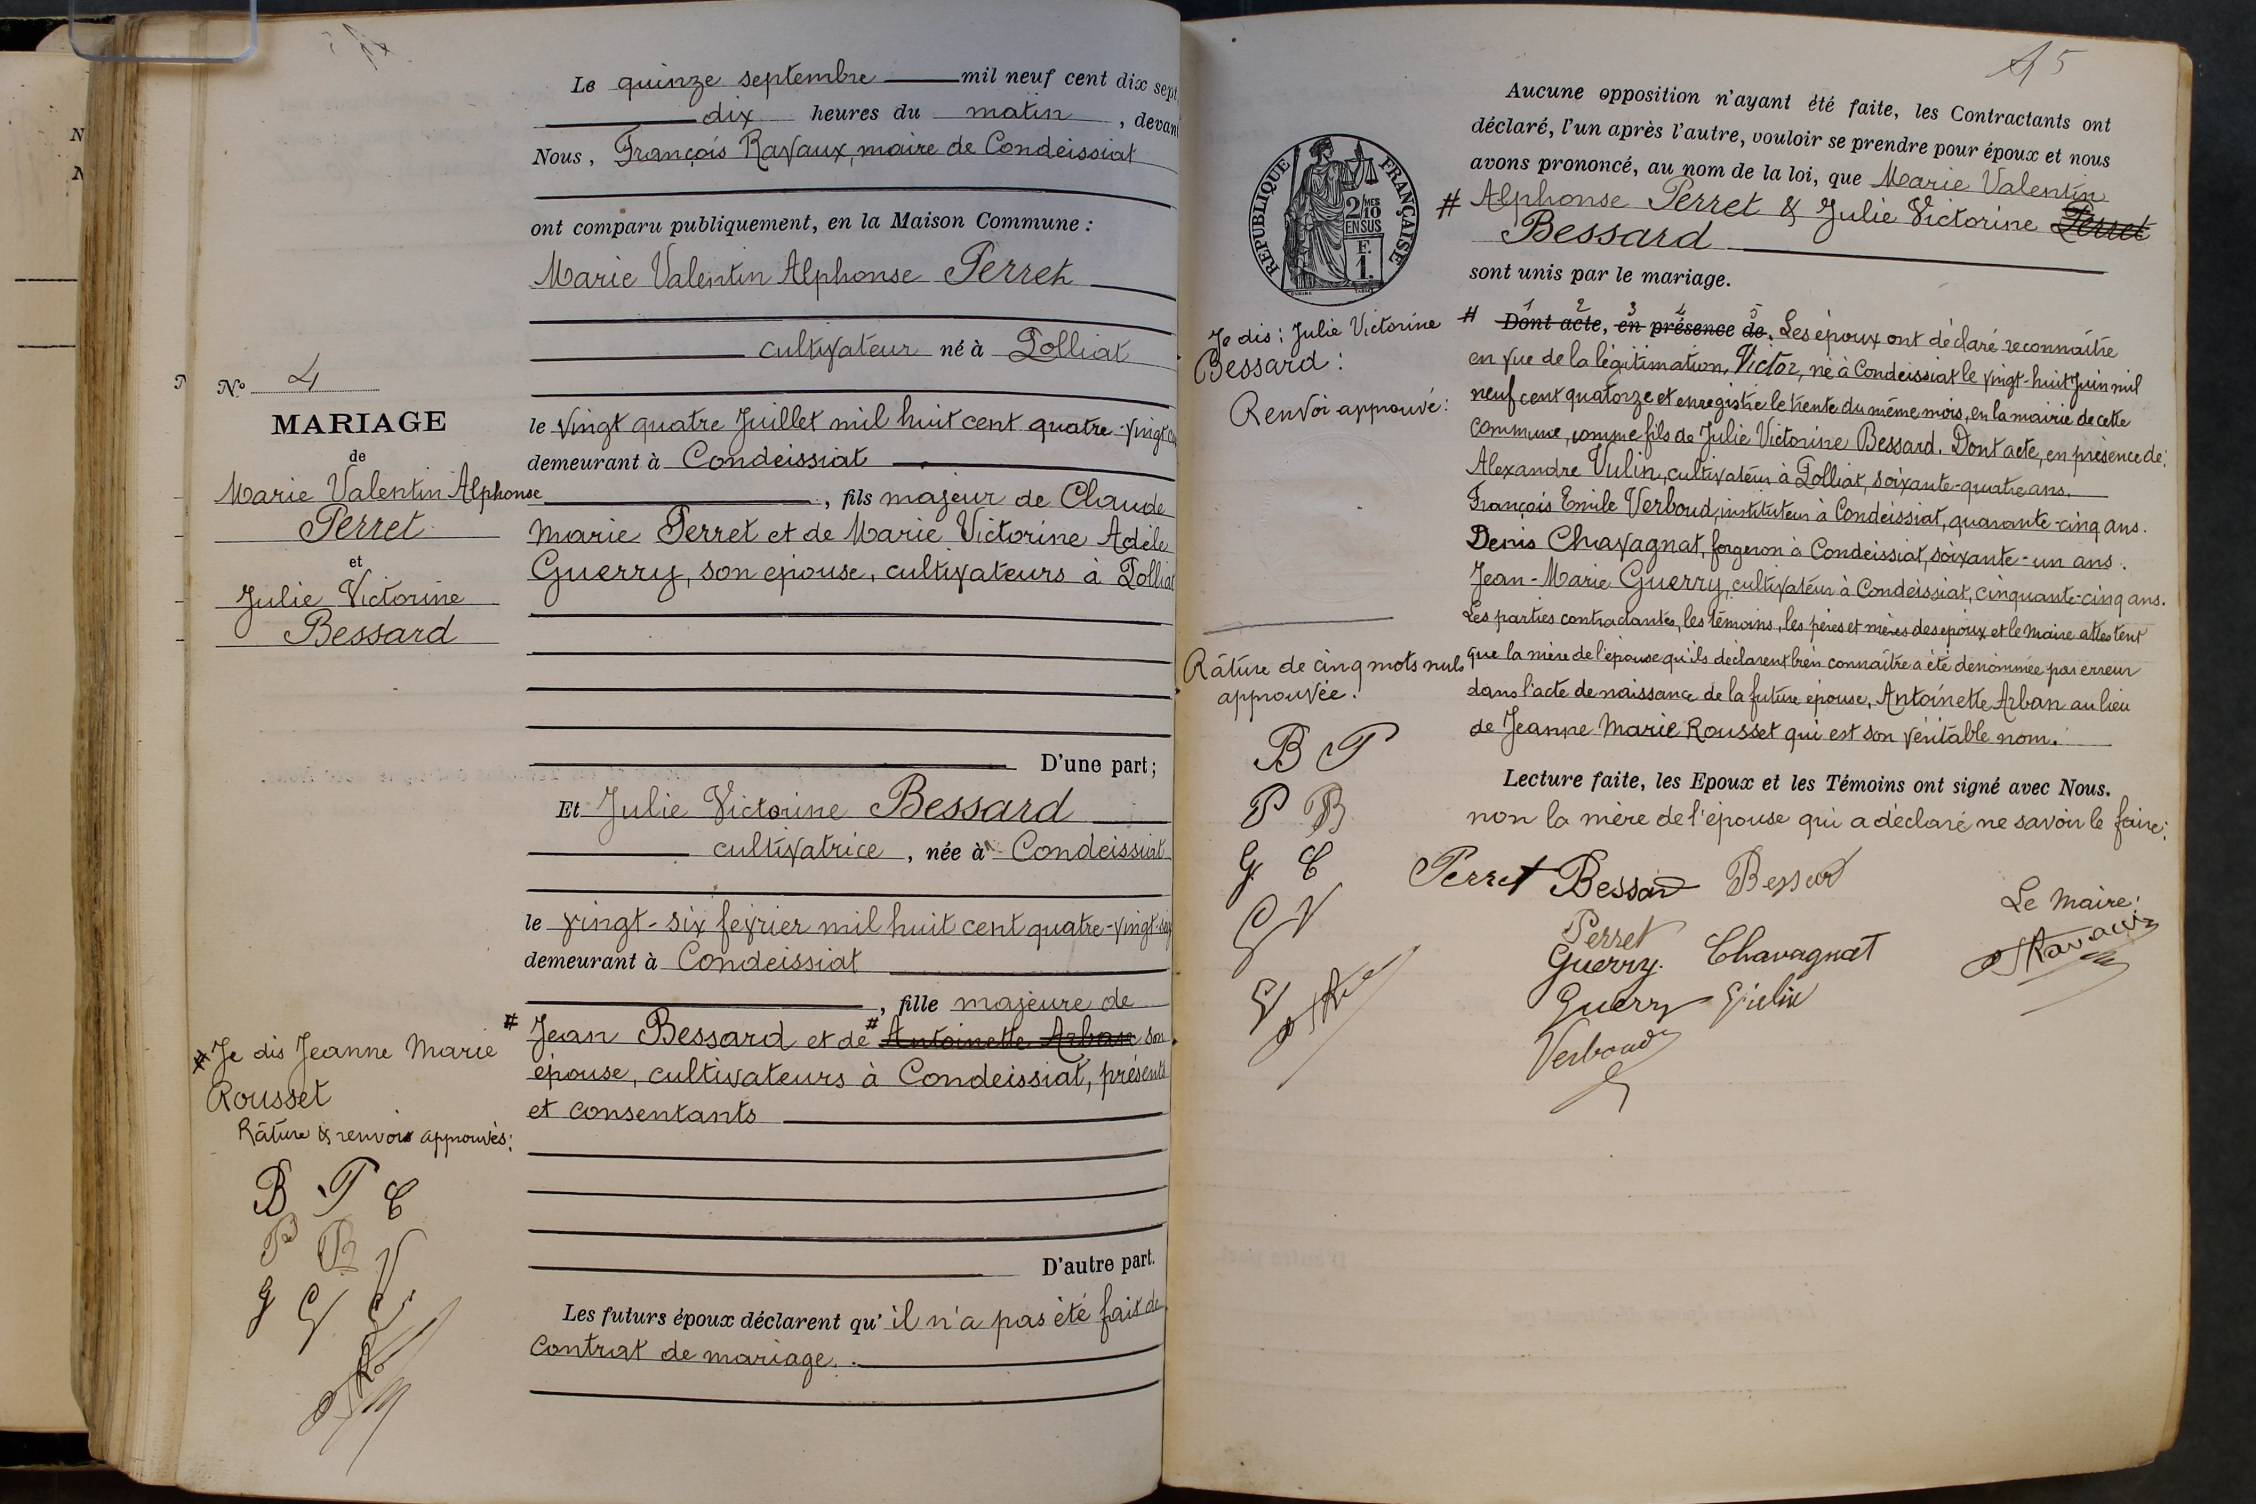 Le quinze septembre mil neuf cent dix sept,
dix heures du matin, devant
Nous, François Ravaux, maire de Condeissiat
ont comparu publiquement, en la Maison Commune :
Marie Valentin Alphonse Perret
cultivateur né à Polliat
le vingt quatre Juillet mil huit cent quatre-vingt
demeurant à Condeissiat
, fils majeur de Claude
Marie Perret et de Marie Victorine Adèle
Guerry, son épouse, cultivateurs à Polliat
D'une part;
Et Julie Victorine Bessard
cultivatrice, née à Condeissiat
le vingt-six février mil huit cent quatre-vingt-
demeurant à Condeissiat
, fille majeure de
# Jean Bessard et de # Antoinette Arban son
épouse, cultivateurs à Condeissiat, présents
et consentants
D'autre part.
Les futurs époux déclarent qu'il n'a pas été fait de
contrat de mariage.
No 4
MARIAGE
de
Marie Valentin Alphonse
Perret
et
Julie Victorine
Bessard
# Je dis Jeanne Marie
Rousset
Râture & renvois approuvés:
B P C
P B V
G
45
Aucune opposition n'ayant été faite, les Contractants ont
déclaré, l'un après l'autre, vouloir se prendre pour époux et nous
avons prononcé, au nom de la loi, que Marie Valentin
# Alphonse Perret & Julie Victorine Perret
Bessard
sont unis par le mariage.
1 2 3 4 5
# Dont acte, en présence de. Les époux ont déclaré reconnaître
en vue de la légitimation, Victor, né à Condeissiat le vingt-huit Juin mil
neuf cent quatorze et enregistré le trente du même mois, en la mairie de cette
commune, comme fils de Julie Victorine Bessard. Dont acte, en présence de:
Alexandre Vulin, cultivateur à Polliat, soixante-quatre ans.
François Emile Verboud, instituteur à Condeissiat, quarante-cinq ans.
Denis Chavagnat, forgeron à Condeissiat, soixante-un ans.
Jean-Marie Guerry, cultivateur à Condeissiat, cinquante-cinq ans.
Les parties contractantes, les témoins, les pères et mères des époux et le Maire attestent
que la mère de l'épouse qu'ils déclarent bien connaître a été dénommée par erreur
dans l'acte de naissance de la future épouse, Antoinette Arban au lieu
de Jeanne Marie Rousset qui est son véritable nom.
Lecture faite, les Epoux et les Témoins ont signé avec Nous.
non la mère de l'épouse qui a déclaré ne savoir le faire:
Perret Bessard Bessard
Le Maire:
Perret
Guerry. Chavagnat Ravaux
Guerry Vulin
Verboud
RÉPUBLIQUE FRANÇAISE
2/10
MES
EN SUS
F.
1.
Je dis: Julie Victorine
Bessard:
Renvoi approuvé:
Râture de cinq mots nuls
approuvée.
B P
P B
G C
V